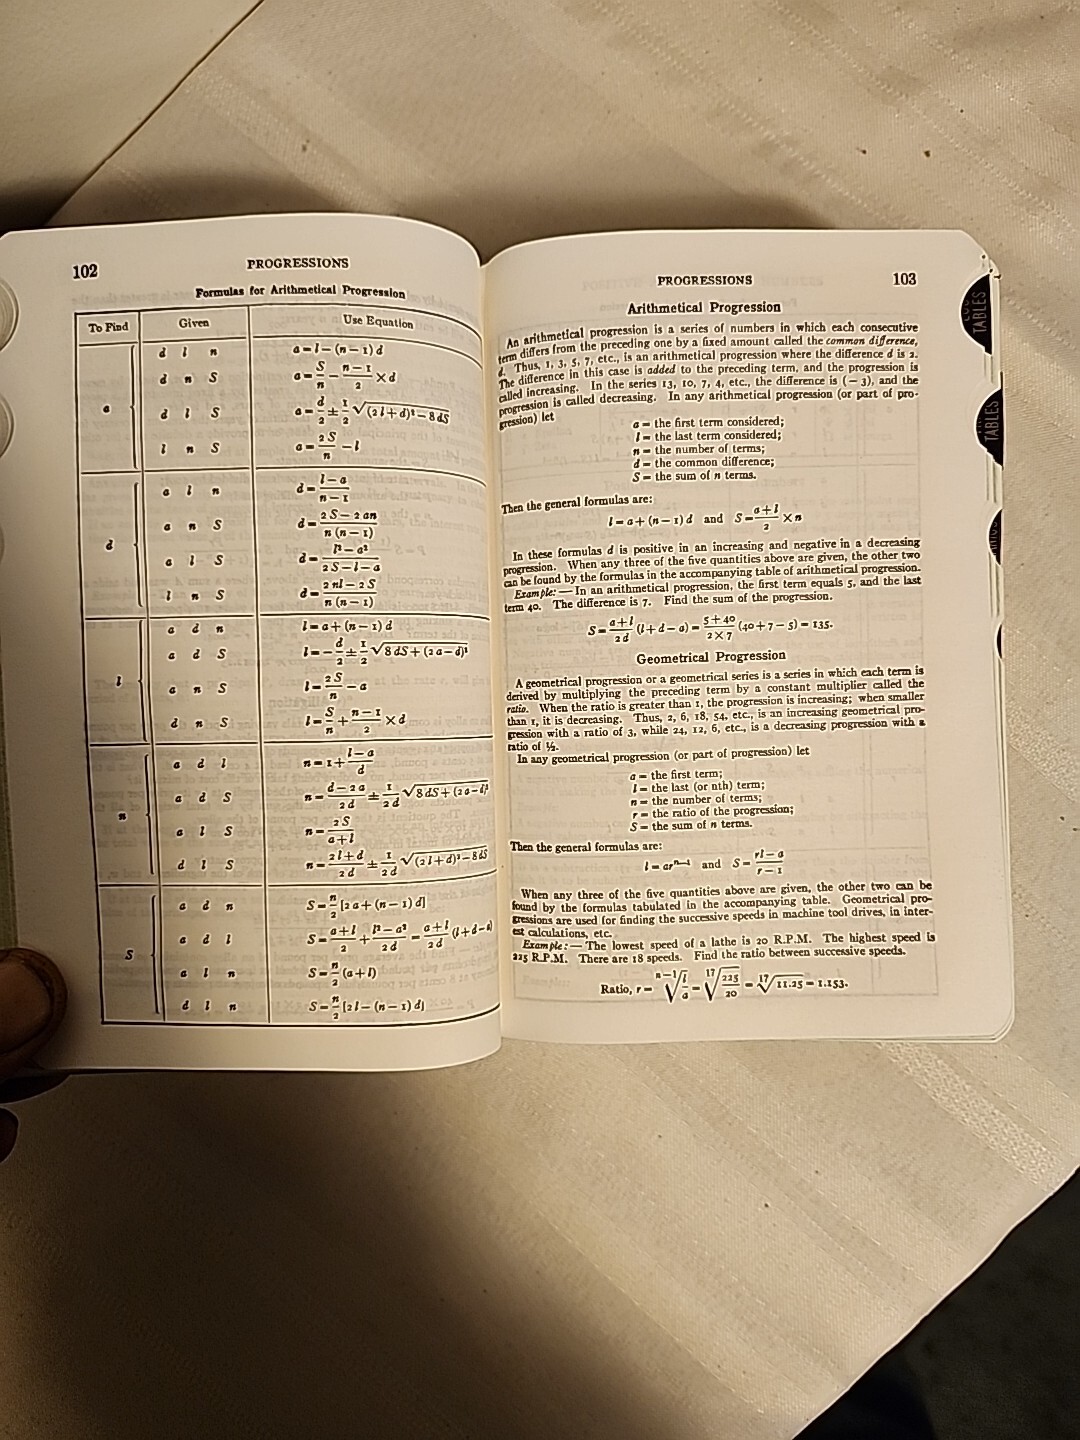 102
PROGRESSIONS
Formulas for Arithmetical Progression
To Find Given Use Equation
a
d l n a = l − (n − 1) d
d n S a = S/n − (n − 1)/2 × d
d l S a = d/2 ± 1/2 √((2l + d)² − 8dS)
l n S a = 2S/n − l
d
a l n d = (l − a)/(n − 1)
a n S d = (2S − 2an)/(n (n − 1))
a l S d = (l² − a²)/(2S − l − a)
l n S d = (2nl − 2S)/(n (n − 1))
l
a d n l = a + (n − 1) d
a d S l = − d/2 ± 1/2 √(8dS + (2a − d)²)
a n S l = 2S/n − a
d n S l = S/n + (n − 1)/2 × d
n
a d l n = 1 + (l − a)/d
a d S n = (d − 2a)/2d ± 1/2d √(8dS + (2a − d)²)
a l S n = 2S/(a + l)
d l S n = (2l + d)/2d ± 1/2d √((2l + d)² − 8dS)
S
a d n S = n/2 [2a + (n − 1) d]
a d l S = (a + l)/2 + (l² − a²)/2d = (a + l)/2d (l + d − a)
a l n S = n/2 (a + l)
d l n S = n/2 [2l − (n − 1) d]
PROGRESSIONS
103
Arithmetical Progression
An arithmetical progression is a series of numbers in which each consecutive
term differs from the preceding one by a fixed amount called the common difference,
d. Thus, 1, 3, 5, 7, etc., is an arithmetical progression where the difference d is 2.
The difference in this case is added to the preceding term, and the progression is
called increasing. In the series 13, 10, 7, 4, etc., the difference is (− 3), and the
progression is called decreasing. In any arithmetical progression (or part of pro-
gression) let
a = the first term considered;
l = the last term considered;
n = the number of terms;
d = the common difference;
S = the sum of n terms.
Then the general formulas are:
l = a + (n − 1) d and S = (a + l)/2 × n
In these formulas d is positive in an increasing and negative in a decreasing
progression. When any three of the five quantities above are given, the other two
can be found by the formulas in the accompanying table of arithmetical progression.
Example: — In an arithmetical progression, the first term equals 5, and the last
term 40. The difference is 7. Find the sum of the progression.
S = (a + l)/2d (l + d − a) = (5 + 40)/(2 × 7) (40 + 7 − 5) = 135.
Geometrical Progression
A geometrical progression or a geometrical series is a series in which each term is
derived by multiplying the preceding term by a constant multiplier called the
ratio. When the ratio is greater than 1, the progression is increasing; when smaller
than 1, it is decreasing. Thus, 2, 6, 18, 54, etc., is an increasing geometrical pro-
gression with a ratio of 3, while 24, 12, 6, etc., is a decreasing progression with a
ratio of ½.
In any geometrical progression (or part of progression) let
a = the first term;
l = the last (or nth) term;
n = the number of terms;
r = the ratio of the progression;
S = the sum of n terms.
Then the general formulas are:
l = arⁿ⁻¹ and S = (rl − a)/(r − 1)
When any three of the five quantities above are given, the other two can be
found by the formulas tabulated in the accompanying table. Geometrical pro-
gressions are used for finding the successive speeds in machine tool drives, in inter-
est calculations, etc.
Example: — The lowest speed of a lathe is 20 R.P.M. The highest speed is
225 R.P.M. There are 18 speeds. Find the ratio between successive speeds.
Ratio, r = ⁿ⁻¹√(l/a) = ¹⁷√(225/20) = ¹⁷√11.25 = 1.153.
TABLES
TABLES